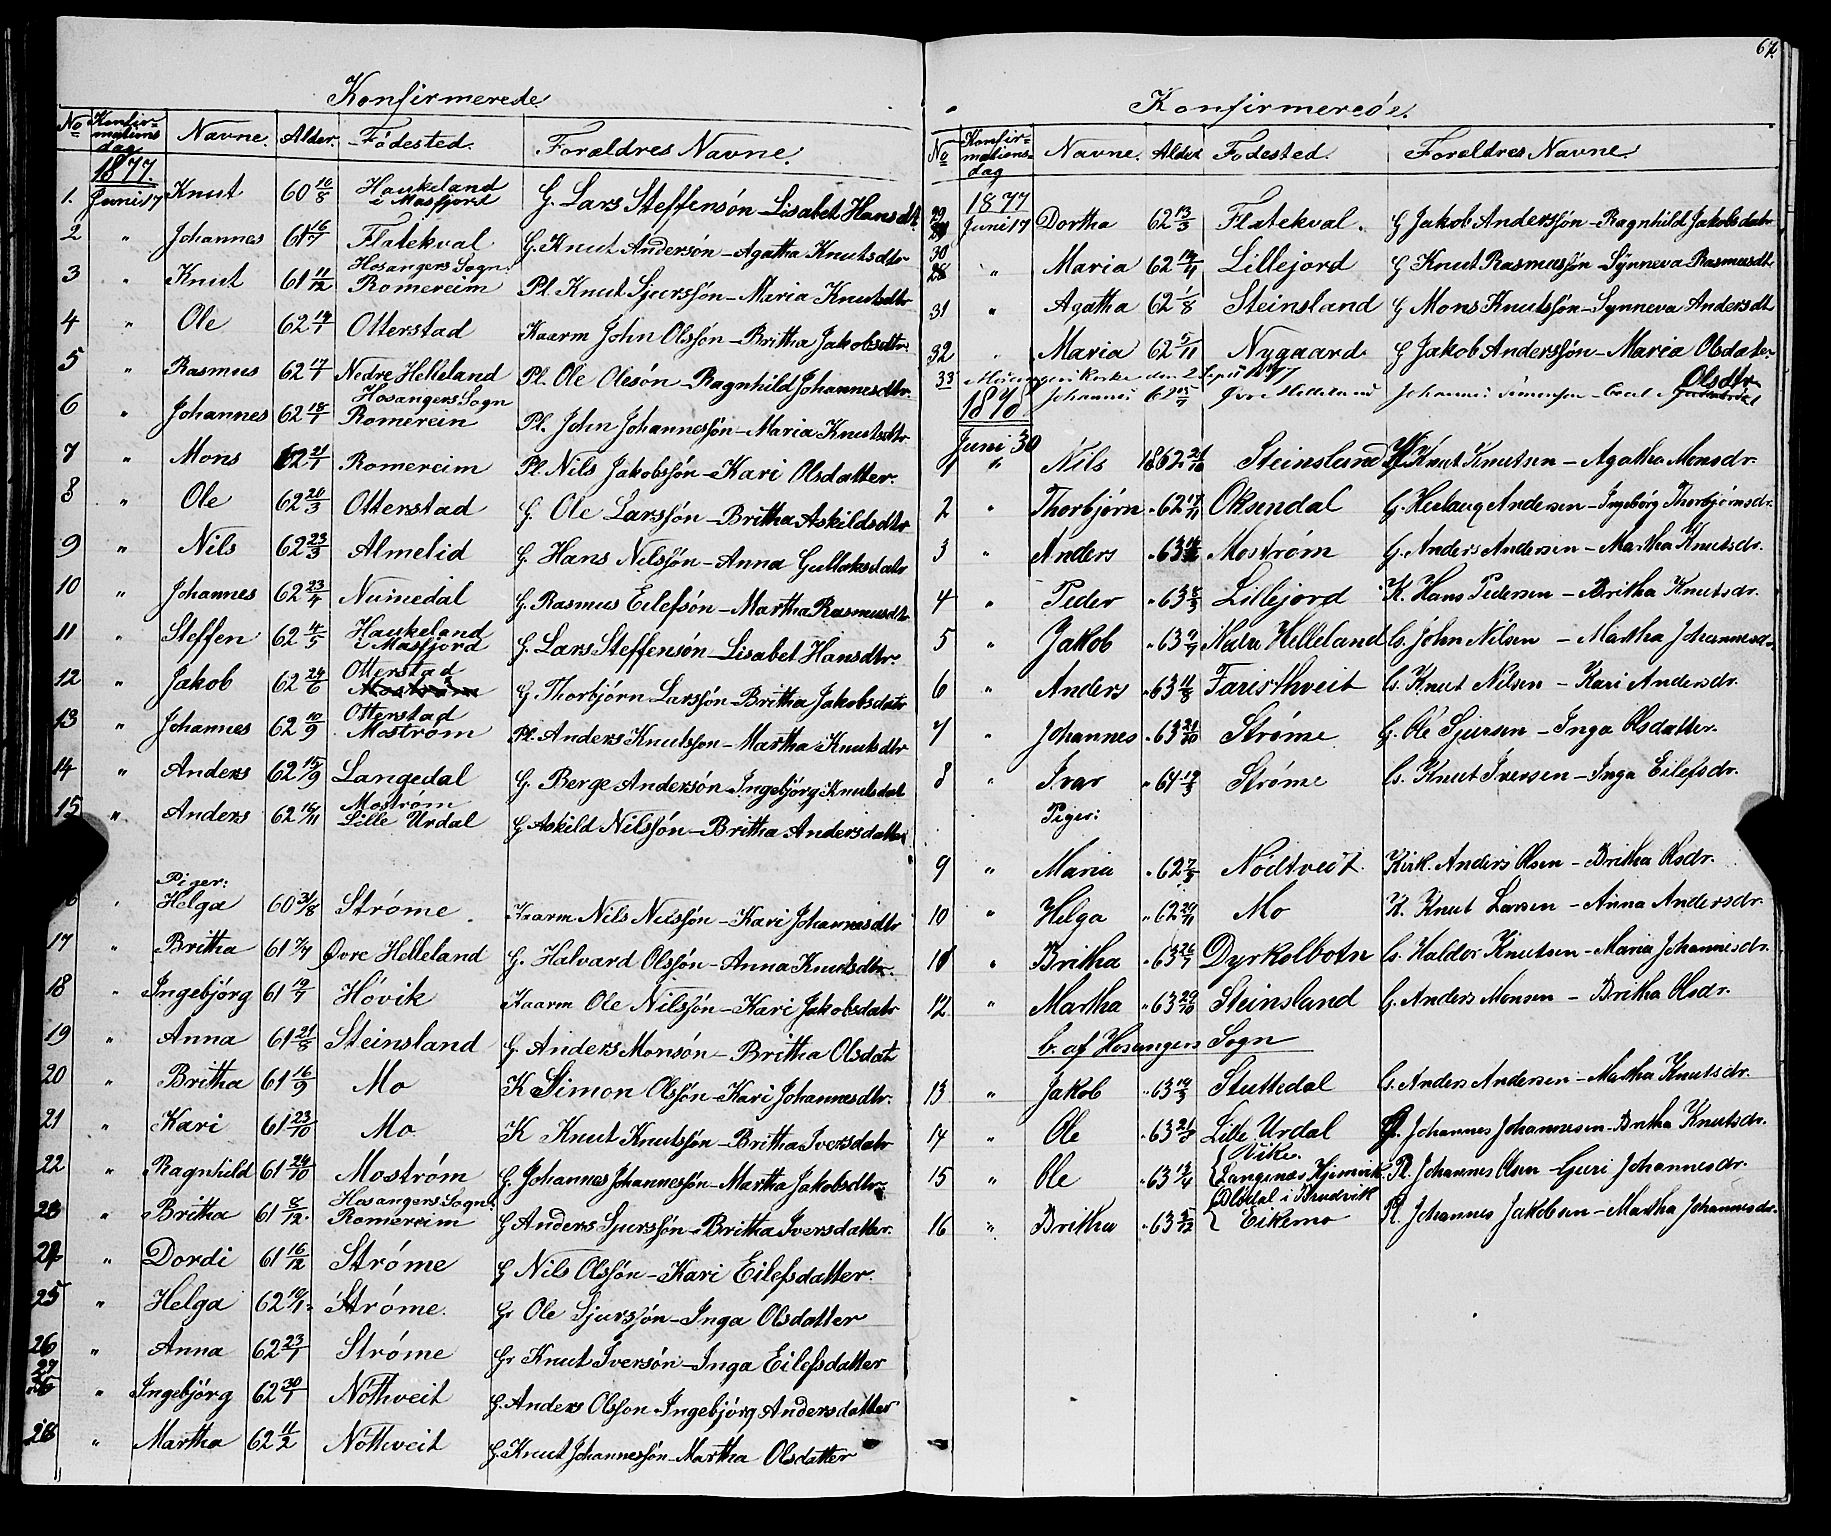 Konfirmerede
No Konfir-mations dag Navne. Alder. Födested. Forældres Navne.
1877.
1. Juni 17 Knut 60 10/8 Haukeland i Masfjord G. Lars Steffensön - Lisabet Hansdt.
2 " Johannes 61 16/7 Flatekval G. Knut Andersön - Agatha Knutsdtr
3 " Knut 61 11/12 Hosangers Sogn. Romereim Pl. Knut Sjurssön - Maria Knutsdtr
4 " Ole 62 14/1 Otterstad Kaarm John Olssön - Britha Jakobsdtr.
5 " Rasmus 62 17/1 Nedre Helleland Pl. Ole Olesön - Ragnhild Johannesdtr.
6 " Johannes 62 18/1 Hosangers Sogn Romerein Pl. John Johannessön - Maria Knutsdtr
7 " Mons 62 21/1 Romereim Pl. Nils Jakobssön - Kari Olsdatter.
8 " Ole 62 20/3 Otterstad G. Ole Larssön - Britha Askildsdtr
9 " Nils 62 23/3 Almelid G. Hans Nilssön - Anna Gullaksdatr
10 " Johannes 62 23/4 Numedal G. Rasmus Eilefsön - Martha Rasmusdt.
11 " Steffen 62 4/5 Haukeland i Masfjord G. Lars Steffensön - Lisabet Hansdtr.
12 " Jakob 62 24/6 Otterstad Moström G Thorbjörn Larssön - Britha Jakobsdatr
13 " Johannes 62 10/9 Otterstad Moström Pl. Anders Knutsson - Martha Knutsdtr
14 " Anders 62 15/9 Langedal G. Berge Andersön - Ingebjörg Knutsdat
15 " Anders 62 16/11 Moström Lille Urdal G Askild Nilssön - Britha Andersdatter
Piger:
" Helga 60 31/8 Ströme. Kaarm Nils Nilssön - Kari Johannesdtr
17 " Britha 61 7/7 Øvre Helleland G. Halvard Olssön - Anna Knutsdtr.
18 " Ingebjörg 61 19/7 Hövik Kaarm Ole Nilssön - Kari Jakobsdatr
19 " Anna 61 21/8 Steinsland G Anders Monsön - Britha Olsdat
20 " Britha 61 16/9 Mo K Simon Olssön - Kari Johannesdtr.
21 " Kari 61 23/10 Mo. K Knut Knutssön - Britha Iversdatr
22 " Ragnhild 61 24/10 Moström G Johannes Johannessön - Martha Jakobsdtr.
23 " Britha 61 8/12. Hosangers Sogn. Romereim G Anders Sjurssön - Britha Iversdatter.
24 " Dordi 61 16/12 Ströme G Nils Olssön - Kari Eilefsdatter.
25 " Helga 62 10/1 Ströme. Gr Ole Sjurssön - Inga Olsdatter
26 " Anna 62 23/1 Ströme Gr Knut Iversön - Inga Eilefsdatter
27 " Ingebjörg 62 30/1 Nöthveit G. Anders Olsson - Ingebjörg Andersdatter
28 " Martha 62 11/2 Nöthveit G. Knut Johannessön - Martha Olsdatter
67.
Konfirmerede.
No Konfir-mations-dag Navne. Alder Födested. Forældres Navne.
1877
29 Juni 17 Dortha 62 13/3 Flatekval. G Jakob Anderssön - Ragnhild Jakobsdatr
30 28 " Maria 62 14/4 Lillejord G Knut Rasmussön - Synneva Rasmusdt
31 " Agatha 62 1/8 Steinsland G Mons Knutssön - Synneva Andersdt
32 " Maria 62 5/11 Nygaard G Jakob Anderssön - Maria Olsdater
33 Johannes Øvre Helleland Johannes Simonsen Olsdtr
1878
Juni 30
1 " Nils 1862 24/10 Steinsland G. Knut Knutsen - Agatha Monsdr.
2 " Thorbjørn " 62 17/11 Oksendal G. Herlaug Andersen - Ingeborg Thorbjørnsdr.
3 " Anders " 63 Mostrøm G. Anders Andersen - Martha Knutsdr.
4 " Peder " 63 8/3 Lillejord K. Hans Pedersen - Britha Knutsdr.
5 " Jakob " 63 9/7 Helleland G. John Nilsen - Martha Johannesdr.
6 " Anders " 63 11/8 Faristhveit G. Knut Nilsen - Kari Andersdr.
7 " Johannes " 63 21/10 Strøme G. Ole Sjursen - Inga Olsdatter.
8 " Ivar " 64 19/3 Strøme G. Knut Iversen - Inga Eilefsdr.
Piger:
9 " Maria " 62 7/9 Nødtveit. Kirk. Anders Olsen - Britha Olsdr.
10 " Helga " 62 29/11 Mo K. Knut Larsen - Anna Andersdr.
11 " Britha " 63 26/7 Dyrkolbotn G. Haldor Knutsen - Maria Johannesdr.
12 " Martha " 63 29/10 Steinsland G. Anders Monsen - Britha Olsdr.
b. af Hosangers Sogn
13 " Jakob " 63 19/3 Stuttedal G. Anders Andersen - Martha Knutsdr.
14 " Ole " 63 Lille Urdal Johannes Johannesen - Britha Knutsdr.
15 " Ole " 63 13/4 Eike. Langenæs Hjemvik Pl. Johannes Olsen - Guri Johannesdr.
16 " Britha " 63 i Bruvik Eikemo Pl. Johannes Jakobsen - Martha Johannesdr.